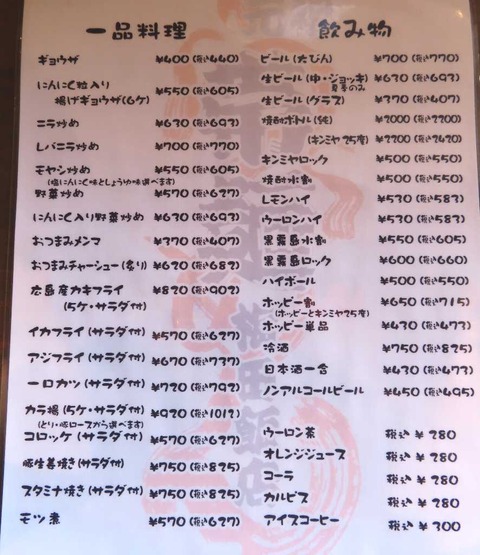 一品料理
ギョウザ ¥400 (税込440)
にんにく粒入り
揚げギョウザ(6ケ) ¥550 (税込605)
ニラ炒め ¥630 (税込693)
レバニラ炒め ¥700 (税込770)
モヤシ炒め ¥550 (税込605)
(塩にんにく味としょうゆ味選べます)
野菜炒め ¥570 (税込627)
にんにく入り野菜炒め ¥630 (税込693)
おつまみメンマ ¥370 (税込407)
おつまみチャーシュー(炙り) ¥620 (税込682)
広島産カキフライ ¥820 (税込902)
(5ケ・サラダ付)
イカフライ (サラダ付) ¥570 (税込627)
アジフライ (サラダ付) ¥670 (税込737)
一口カツ (サラダ付) ¥720 (税込792)
カラ揚 (5ケ・サラダ付) ¥920 (税込1012)
(とり・豚ロースから選べます)
コロッケ (サラダ付) ¥570 (税込627)
豚生姜焼き(サラダ付) ¥750 (税込825)
スタミナ焼き(サラダ付) ¥750 (税込825)
モツ煮 ¥570 (税込627)
飲み物
ビール (大びん) ¥700 (税込770)
生ビール (中・ジョッキ) ¥630 (税込693)
夏季のみ
生ビール (グラス) ¥370 (税込407)
焼酎ボトル (純) ¥2000 (税込2200)
(キンミヤ25度) ¥2200 (税込2420)
キンミヤロック ¥500 (税込550)
焼酎水割 ¥500 (税込550)
レモンハイ ¥530 (税込583)
ウーロンハイ ¥530 (税込583)
黒霧島水割 ¥550 (税込605)
黒霧島ロック ¥600 (税込660)
ハイボール ¥500 (税込550)
ホッピー割 ¥650 (税込715)
(ホッピーとキンミヤ25度)
ホッピー単品 ¥430 (税込473)
冷酒 ¥750 (税込825)
日本酒一合 ¥430 (税込473)
ノンアルコールビール ¥450 (税込495)
ウーロン茶 税込 ¥280
オレンジジュース 税込 ¥280
コーラ 税込 ¥280
カルピス 税込 ¥280
アイスコーヒー 税込 ¥300